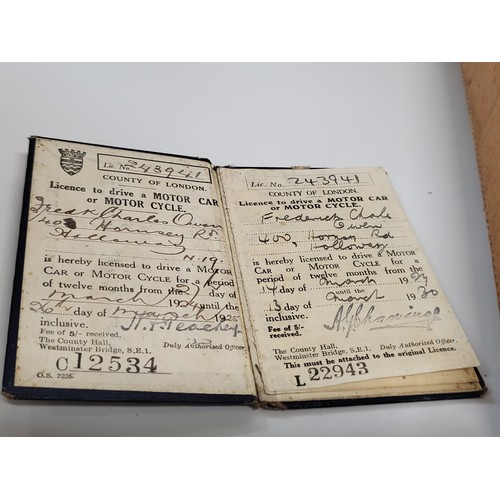 Lic. No. 243941
COUNTY OF LONDON.
Licence to drive a MOTOR CAR
or MOTOR CYCLE.
Charles Owen
400 Hornsey Rd
Holloway
N.19.
is hereby licensed to drive a MOTOR
CAR OR MOTOR CYCLE for a period
of twelve months from the 27 day of
March 1924 until the
26 day of March 1925
inclusive.
Fee of 5/- received.
The County Hall,
Westminster Bridge, S.E.1.
Duly Authorised Officer.
C 12534
O.S. 7225.
Lic. No. 243941
COUNTY OF LONDON.
Licence to drive a MOTOR CAR
or MOTOR CYCLE.
Frederick Chals
Owen
400, Hornsey Rd
Holloway
is hereby licensed to drive a MOTOR
CAR OR MOTOR CYCLE for a
period of twelve months from the
14 day of March 1929
until the
13 day of March 1930
inclusive.
Fee of 5/-
received.
The County Hall,
Westminster Bridge, S.E.1.
Duly Authorised Officer.
This must be attached to the original Licence.
L 22943